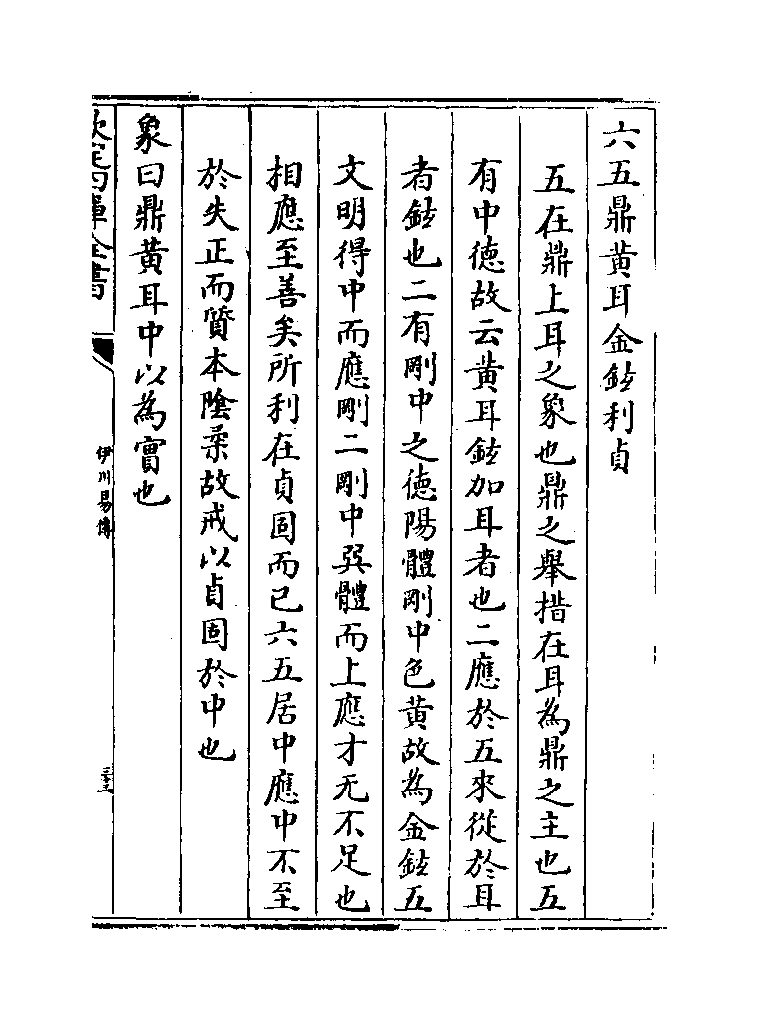 六五鼎黄耳金鉉利貞
五在鼎上耳之象也鼎之舉措在耳為鼎之主也五
有中徳故云黄耳鉉加耳者也二應於五來從於耳
者鉉也二有剛中之徳陽體剛中色黄故為金鉉五
文明得中而應剛二剛中巽體而上應才无不足也
相應至善矣所利在貞固而已六五居中應中不至
於失正而質本隂柔故戒以貞固於中也
象曰鼎黄耳中以為實也
欽定四庫全書
伊川易傳